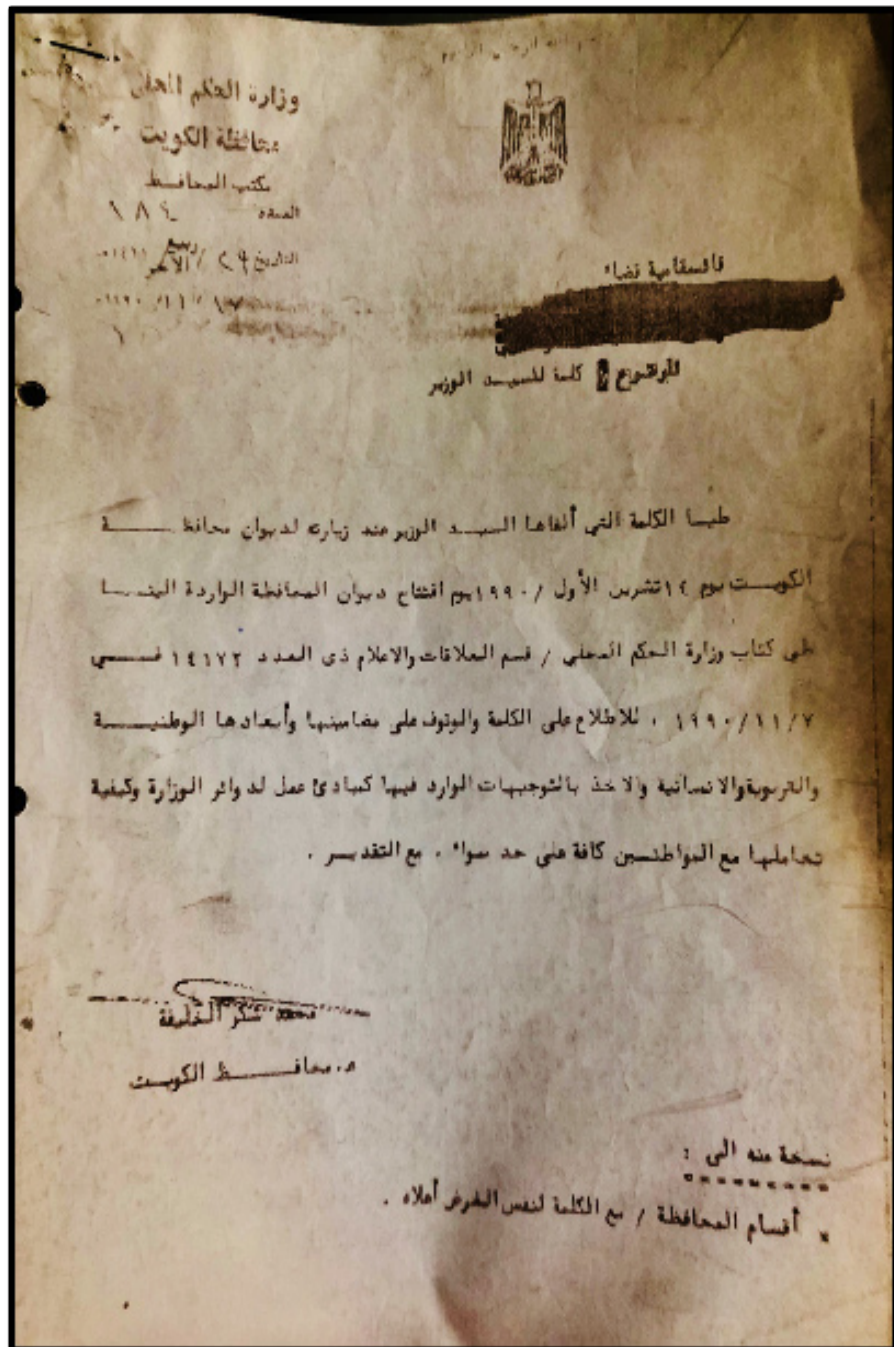 بسم الله الرحمن الرحيم
وزارة الحكم المحلي
محافظة الكويت
مكتب المحافظ
العدد
التاريخ ٢٩ / ربيع الآخر / ١٤١١
/ ١١ / ١٩٩٠
قائمقامية قضاء
الموضوع / كلمة للسيد الوزير
طيا الكلمة التي ألقاها السيد الوزير عند زيارته لديوان محافظة
الكويت يوم ١٤ تشرين الأول / ١٩٩٠ يوم افتتاح ديوان المحافظة الواردة الينا
طي كتاب وزارة الحكم المحلي / قسم العلاقات والاعلام ذى العدد ١٤١٧٢ في
١٩٩٠/١١/٧ ، للاطلاع على الكلمة والوقوف على مضامينها وأبعادها الوطنية
والتربوية والانسانية والاخذ بالتوجيهات الوارد فيها كمبادئ عمل لدوائر الوزارة وكيفية
تعاملها مع المواطنين كافة على حد سواء . مع التقدير .
محمد شكر الخليفة
محافظ الكويت
نسخة منه الى :
أقسام المحافظة / مع الكلمة لنفس الغرض أعلاه .